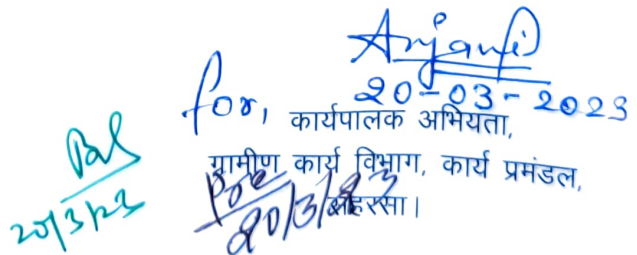 Anjani
20-03-2023
for, कार्यपालक अभियंता,
ग्रामीण कार्य विभाग, कार्य प्रमंडल,
सहरसा।
20/3/23
20/3/23